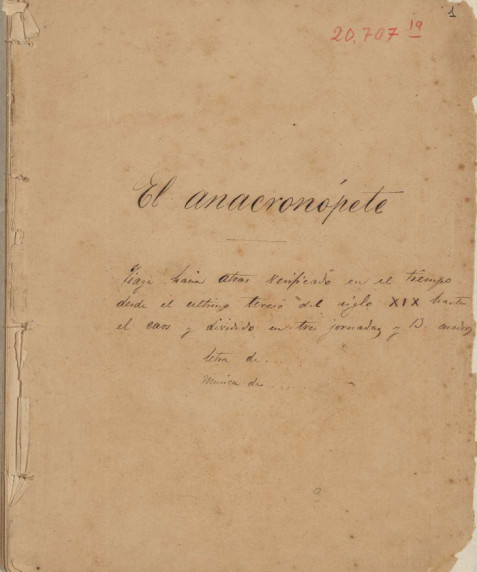 1
20.707 19
El anacronópete
Viage hácia atras verificado en el tiempo
desde el ultimo tercio del siglo XIX hasta
el caos y dividido en tres jornadas y 13 cuadros
letra de....
Musica de.....